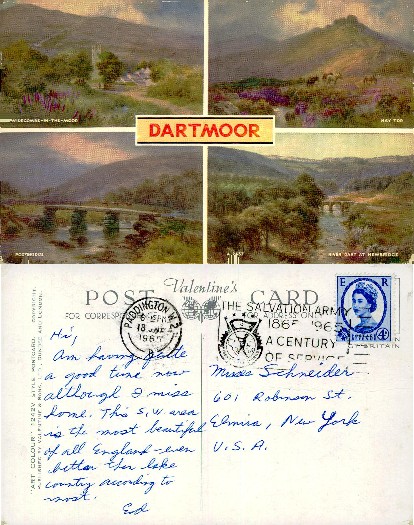 WIDECOMBE-IN-THE-MOOR
HAY TOR
DARTMOOR
POSTBRIDGE
RIVER DART AT NEWBRIDGE
Valentine's
POST CARD
FOR ADDRESS ON
PADDINGTON W.2
6 PM
1965
THE SALVATION ARMY
1865 1965
A CENTURY
OF SERVICE
E R
4D
BRITAIN
"ART COLOUR"
Hi,
Am having quite
a good time now
although I miss
home. This S.W. area
is the most beautiful
of all England - even
better than lake
country according to
most.
Ed
Miss Schneider
601 Robinson St.
Elmira, New York
U.S.A.